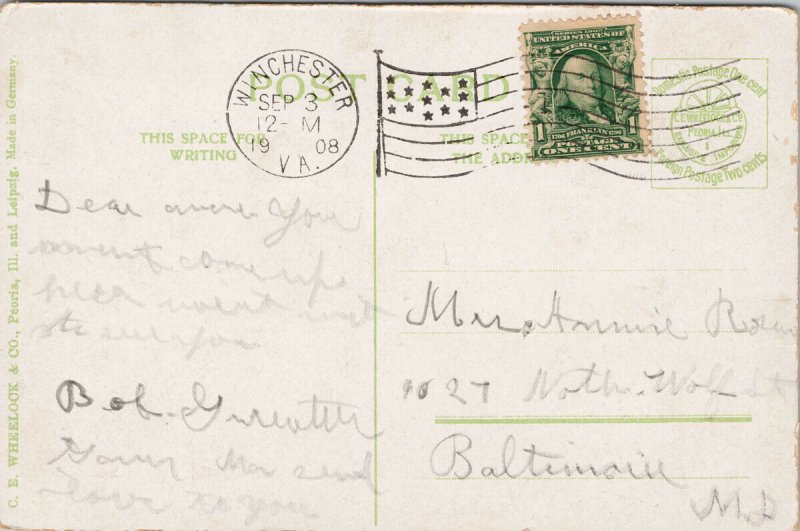 POST CARD
WINCHESTER
SEP 3
12-M
19 08
VA.
SERIES 1902
UNITED STATES OF
AMERICA
1706 FRANKLIN 1790
1 POSTAGE 1
ONE CENT
Domestic Postage One cent
C.E. WHEELOCK & CO.
PEORIA, ILL.
Foreign Postage Two cents
THIS SPACE FOR
WRITING
THIS SPACE
THE ADD
C. E. WHEELOCK & CO., Peoria, Ill. and Leipzig. Made in Germany.
Dear You
must come up
hear
see you
Bob
Ma send
love to you
Mrs. Annie
1627 Noth. Wolf St
Baltimore
M.D